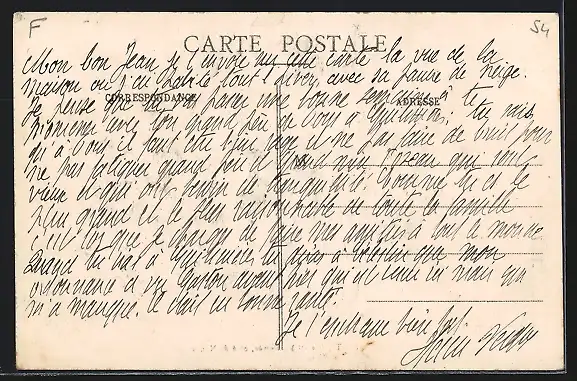 F
54
CARTE POSTALE
CORRESPONDANCE
ADRESSE
Mon bon Jean je t'envoie sur cette carte la vue de la
maison où j'ai habité tout l'hiver, avec sa parure de neige.
Je pense que tu vas passer une bonne semaine à te
promener avec ton grand père de Vous à ; tu sais
qu'à Vous il faut être bien sage et ne pas faire de bruit pour
ne pas fatiguer grand père et grand qui sont
vieux et qui ont besoin de tranquillité. Comme tu es le
plus grand et le plus raisonnable de toute la famille
c'est toi que je charge de faire mes amitiés à tout le monde
Quand tu vas à tu diras à que mon
ordonnance a vu Gaston avant hier qui est venu ici mais qui
m'a manqué. Il était en bonne santé.
Je t'embrasse bien fort.